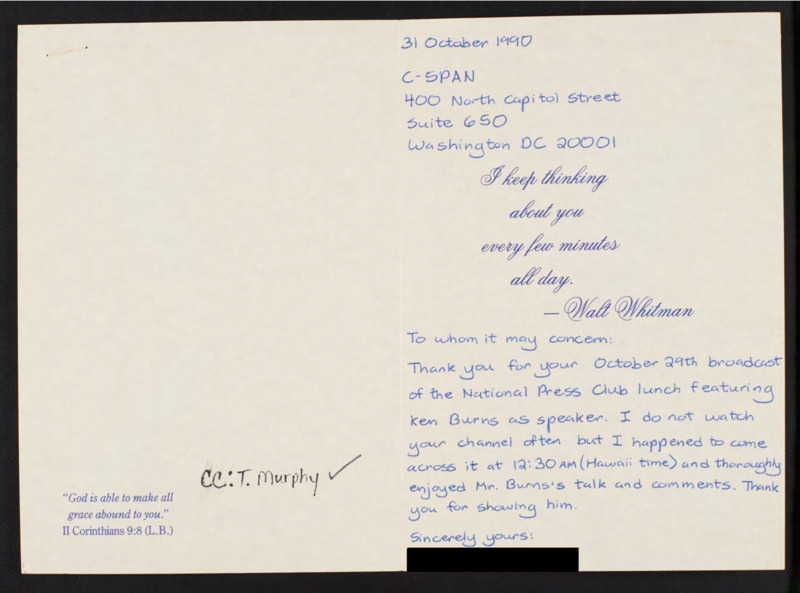 "God is able to make all
grace abound to you."
II Corinthians 9:8 (L.B.)
CC: T. Murphy ✓
31 October 1990
C-SPAN
400 North Capitol Street
Suite 650
Washington DC 20001
I keep thinking
about you
every few minutes
all day.
— Walt Whitman
To whom it may concern:
Thank you for your October 29th broadcast
of the National Press Club lunch featuring
Ken Burns as speaker. I do not watch
your channel often but I happened to come
across it at 12:30 AM (Hawaii time) and thoroughly
enjoyed Mr. Burns's talk and comments. Thank
you for showing him.
Sincerely yours: